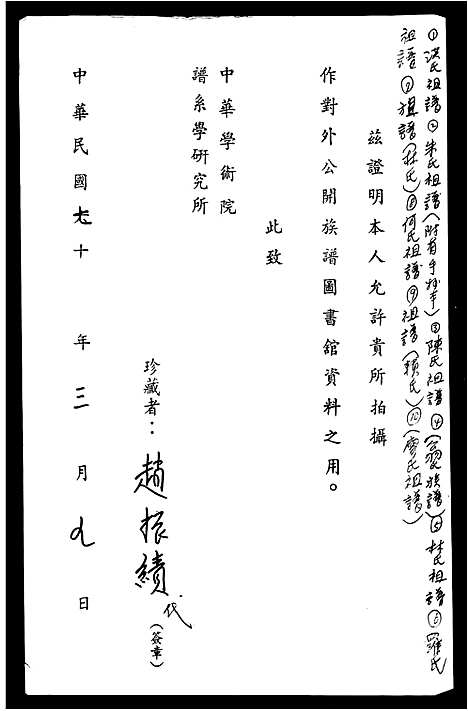 ①洪氏祖譜②朱氏祖譜(附有手抄本)③陳氏祖譜④(翁氏族譜)⑤林氏祖譜⑥羅氏
祖譜⑦族譜(林氏)⑧何氏祖譜⑨祖譜(賴氏)⑩(廖氏祖譜)
茲證明本人允許貴所拍攝
作對外公開族譜圖書館資料之用。
此致
中華學術院
譜系學研究所
珍藏者：趙振績代(簽章)
中華民國七十年三月九日